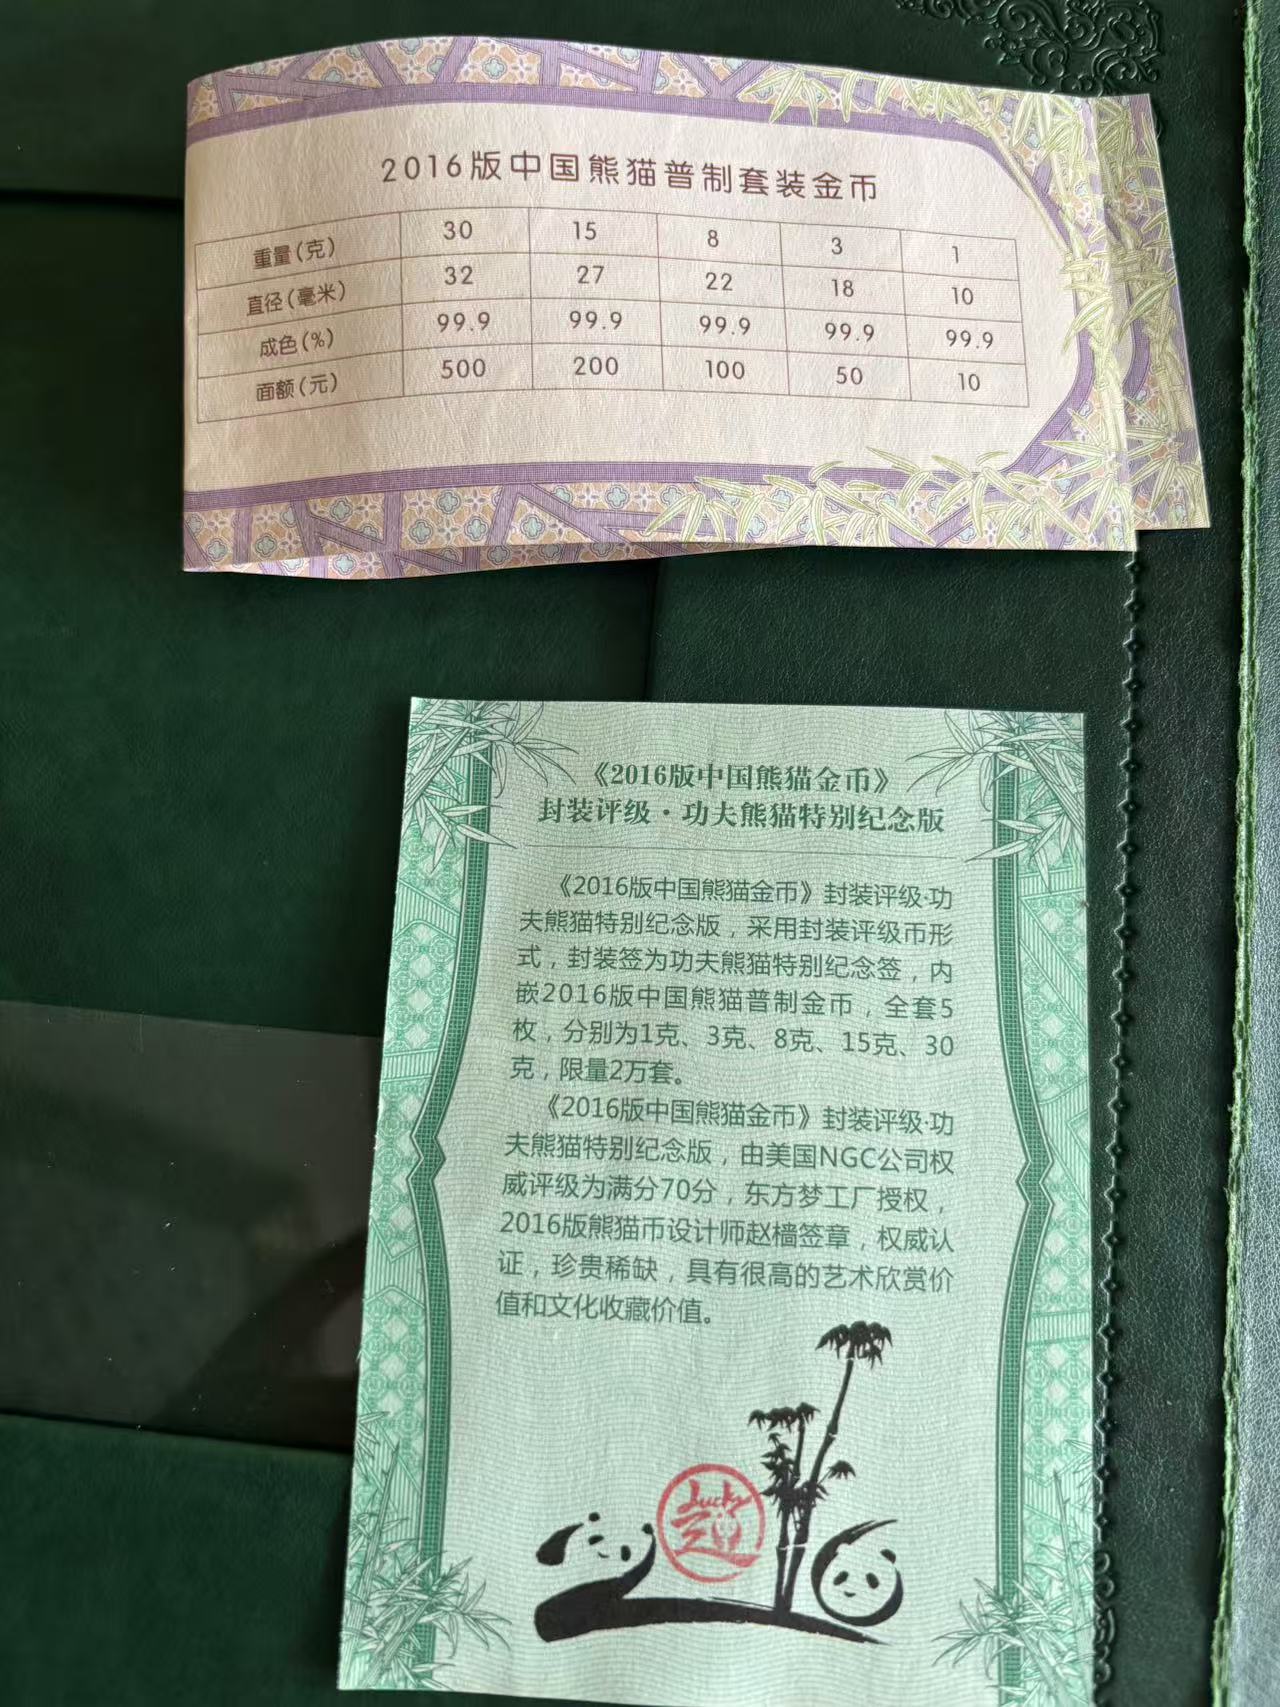 2016版中国熊猫普制套装金币
重量(克) 30 15 8 3 1
直径(毫米) 32 27 22 18 10
成色(%) 99.9 99.9 99.9 99.9 99.9
面额(元) 500 200 100 50 10
《2016版中国熊猫金币》
封装评级·功夫熊猫特别纪念版
《2016版中国熊猫金币》封装评级·功
夫熊猫特别纪念版，采用封装评级币形
式，封装签为功夫熊猫特别纪念签，内
嵌2016版中国熊猫普制金币，全套5
枚，分别为1克、3克、8克、15克、30
克，限量2万套。
《2016版中国熊猫金币》封装评级·功
夫熊猫特别纪念版，由美国NGC公司权
威评级为满分70分，东方梦工厂授权，
2016版熊猫币设计师赵樯签章，权威认
证，珍贵稀缺，具有很高的艺术欣赏价
值和文化收藏价值。